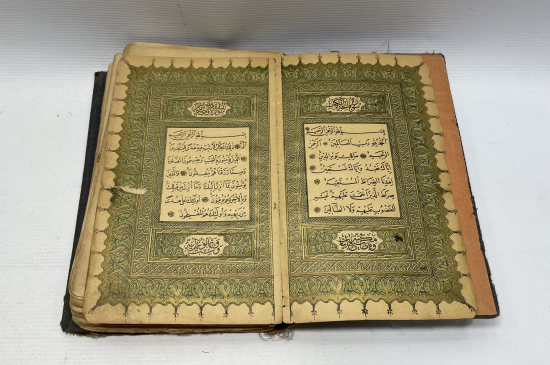 بسم الله الرحمن الرحيم
الحمد لله رب العالمين الرحمن
الرحيم مالك يوم الدين
اياك نعبد واياك نستعين
اهدنا الصراط المستقيم
صراط الذين انعمت عليهم غير
المغضوب عليهم ولا الضالين
بسم الله الرحمن الرحيم
الم ذلك الكتاب لا ريب فيه هدى للمتقين
الذين يؤمنون بالغيب ويقيمون الصلوة
ومما رزقناهم ينفقون والذين
يؤمنون بما انزل اليك وما انزل من
قبلك وبالاخرة هم يوقنون اولئك على هدى
من ربهم واولئك هم المفلحون